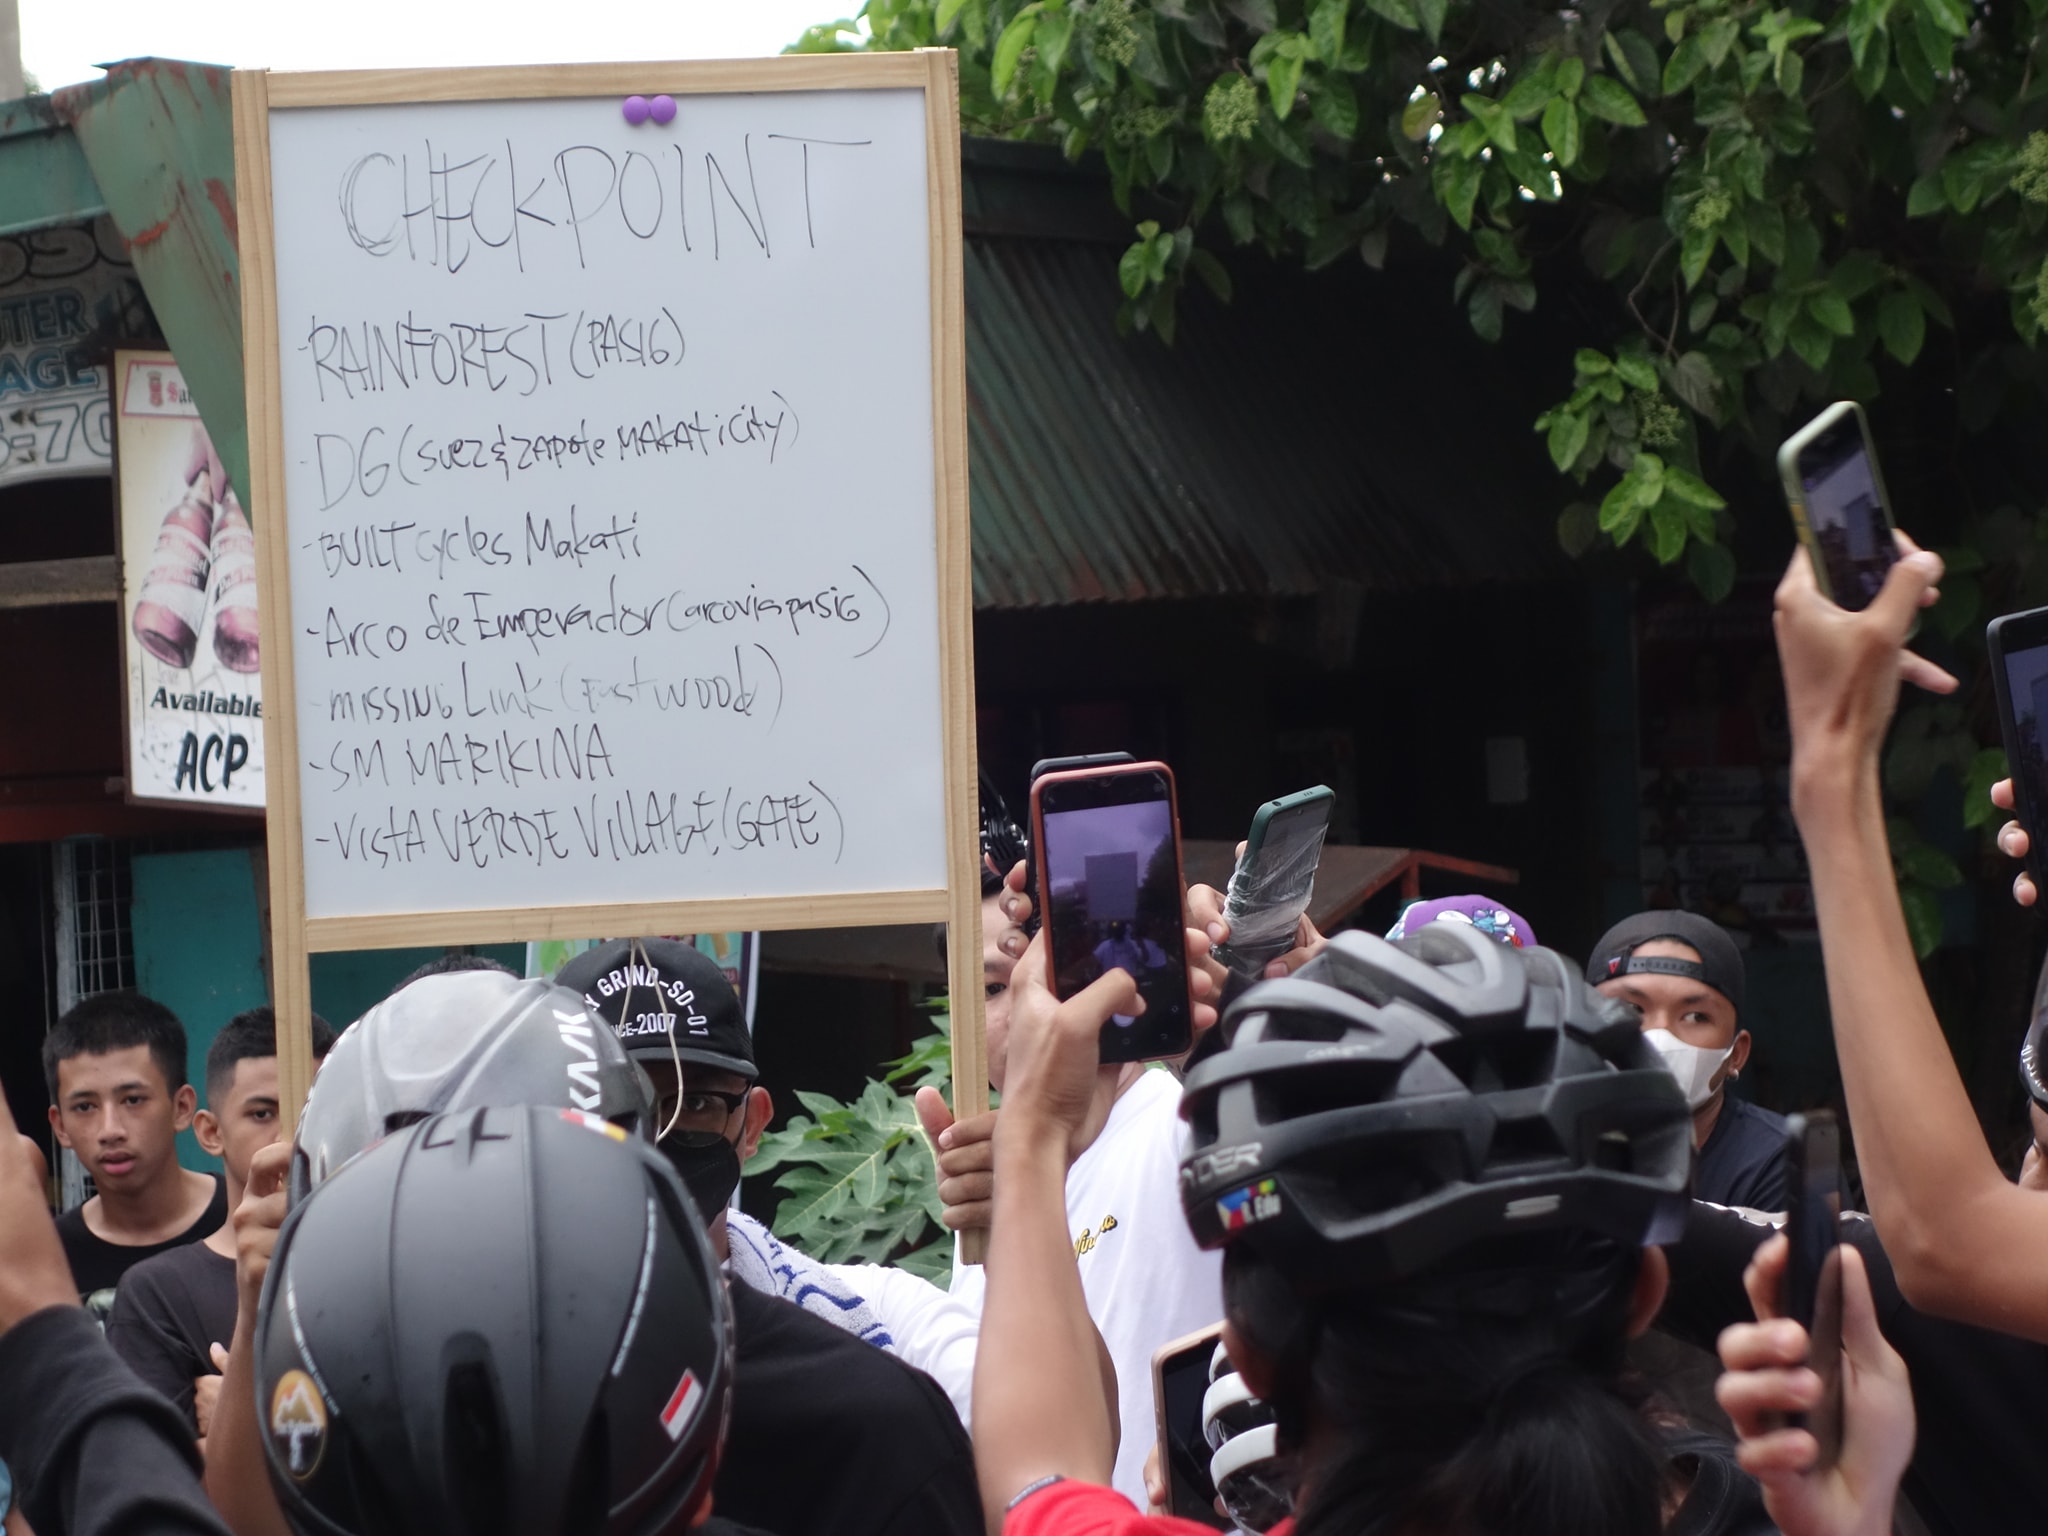 CHECKPOINT
- RAINFOREST (PASIG)
- DG (SUEZ & ZAPOTE MAKATI CITY)
- BUILT cycles Makati
- Arco de Emperador (arcovia pasig)
- MISSING Link (Eastwood)
- SM MARIKINA
- VISTA VERDE VILLAGE, (GATE)
UTER
AGE
Available
ACP
GRIND-SD-01
NCE-2007
KASK
RYDER
LEON